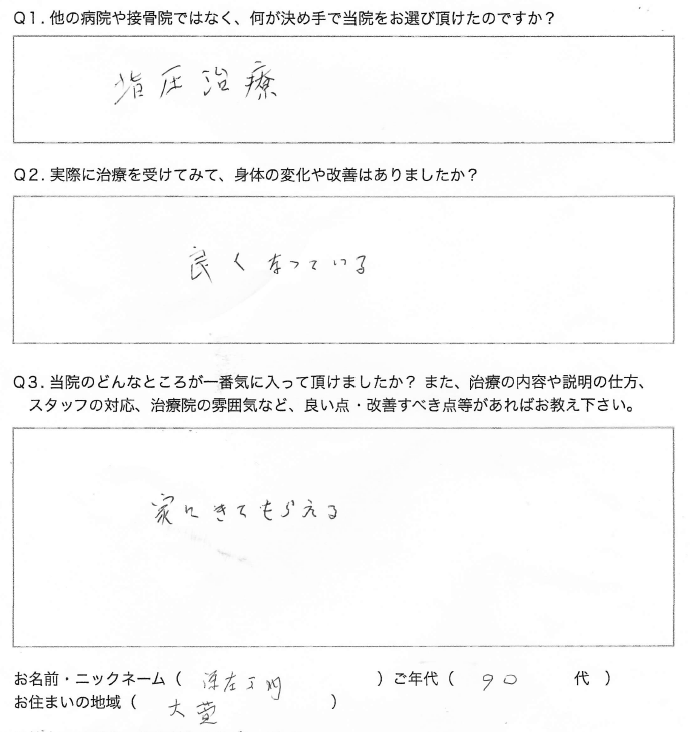 Q1. 他の病院や接骨院ではなく、何が決め手で当院をお選び頂けたのですか？
指圧治療
Q2. 実際に治療を受けてみて、身体の変化や改善はありましたか？
良くなっている
Q3. 当院のどんなところが一番気に入って頂けましたか？ また、治療の内容や説明の仕方、
スタッフの対応、治療院の雰囲気など、良い点・改善すべき点等があればお教え下さい。
家にきてもらえる
お名前・ニックネーム（ ）ご年代（ 90 代 ）
お住まいの地域（ ）